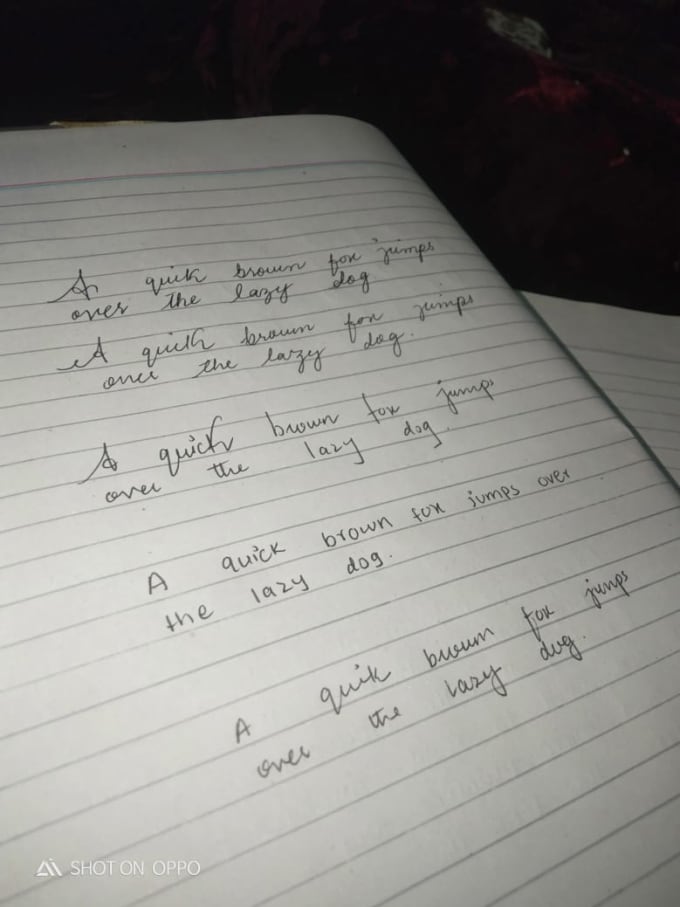 A quick brown fox jumps
over the lazy dog
A quick brown fox jumps
over the lazy dog.
A quick brown fox jumps
over the lazy dog.
A quick brown fox jumps over
the lazy dog.
A quik brown fox jumps
over the lazy dog.
SHOT ON OPPO